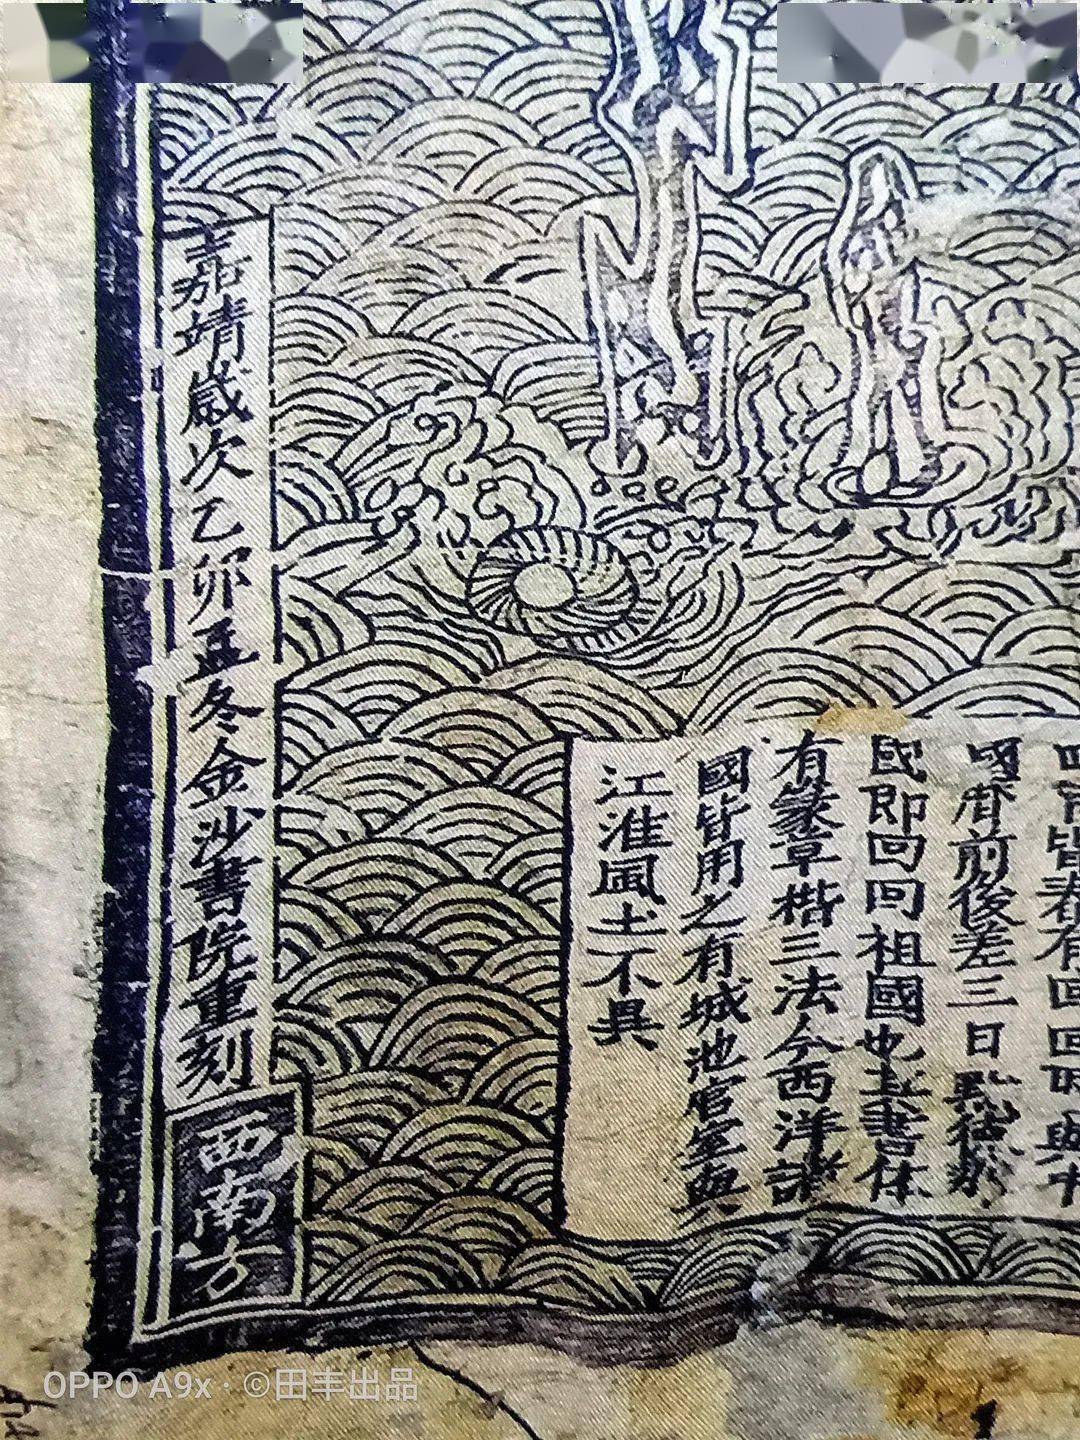 皆春有回回時與中
國前後差三日
國即回回祖國也其書体
有篆草楷三法今西洋諸
國皆用之有城池宮室與
江淮風土不異
嘉靖歲次乙卯孟冬金沙書院重刻
西南方
OPPO A9x · ©田丰出品